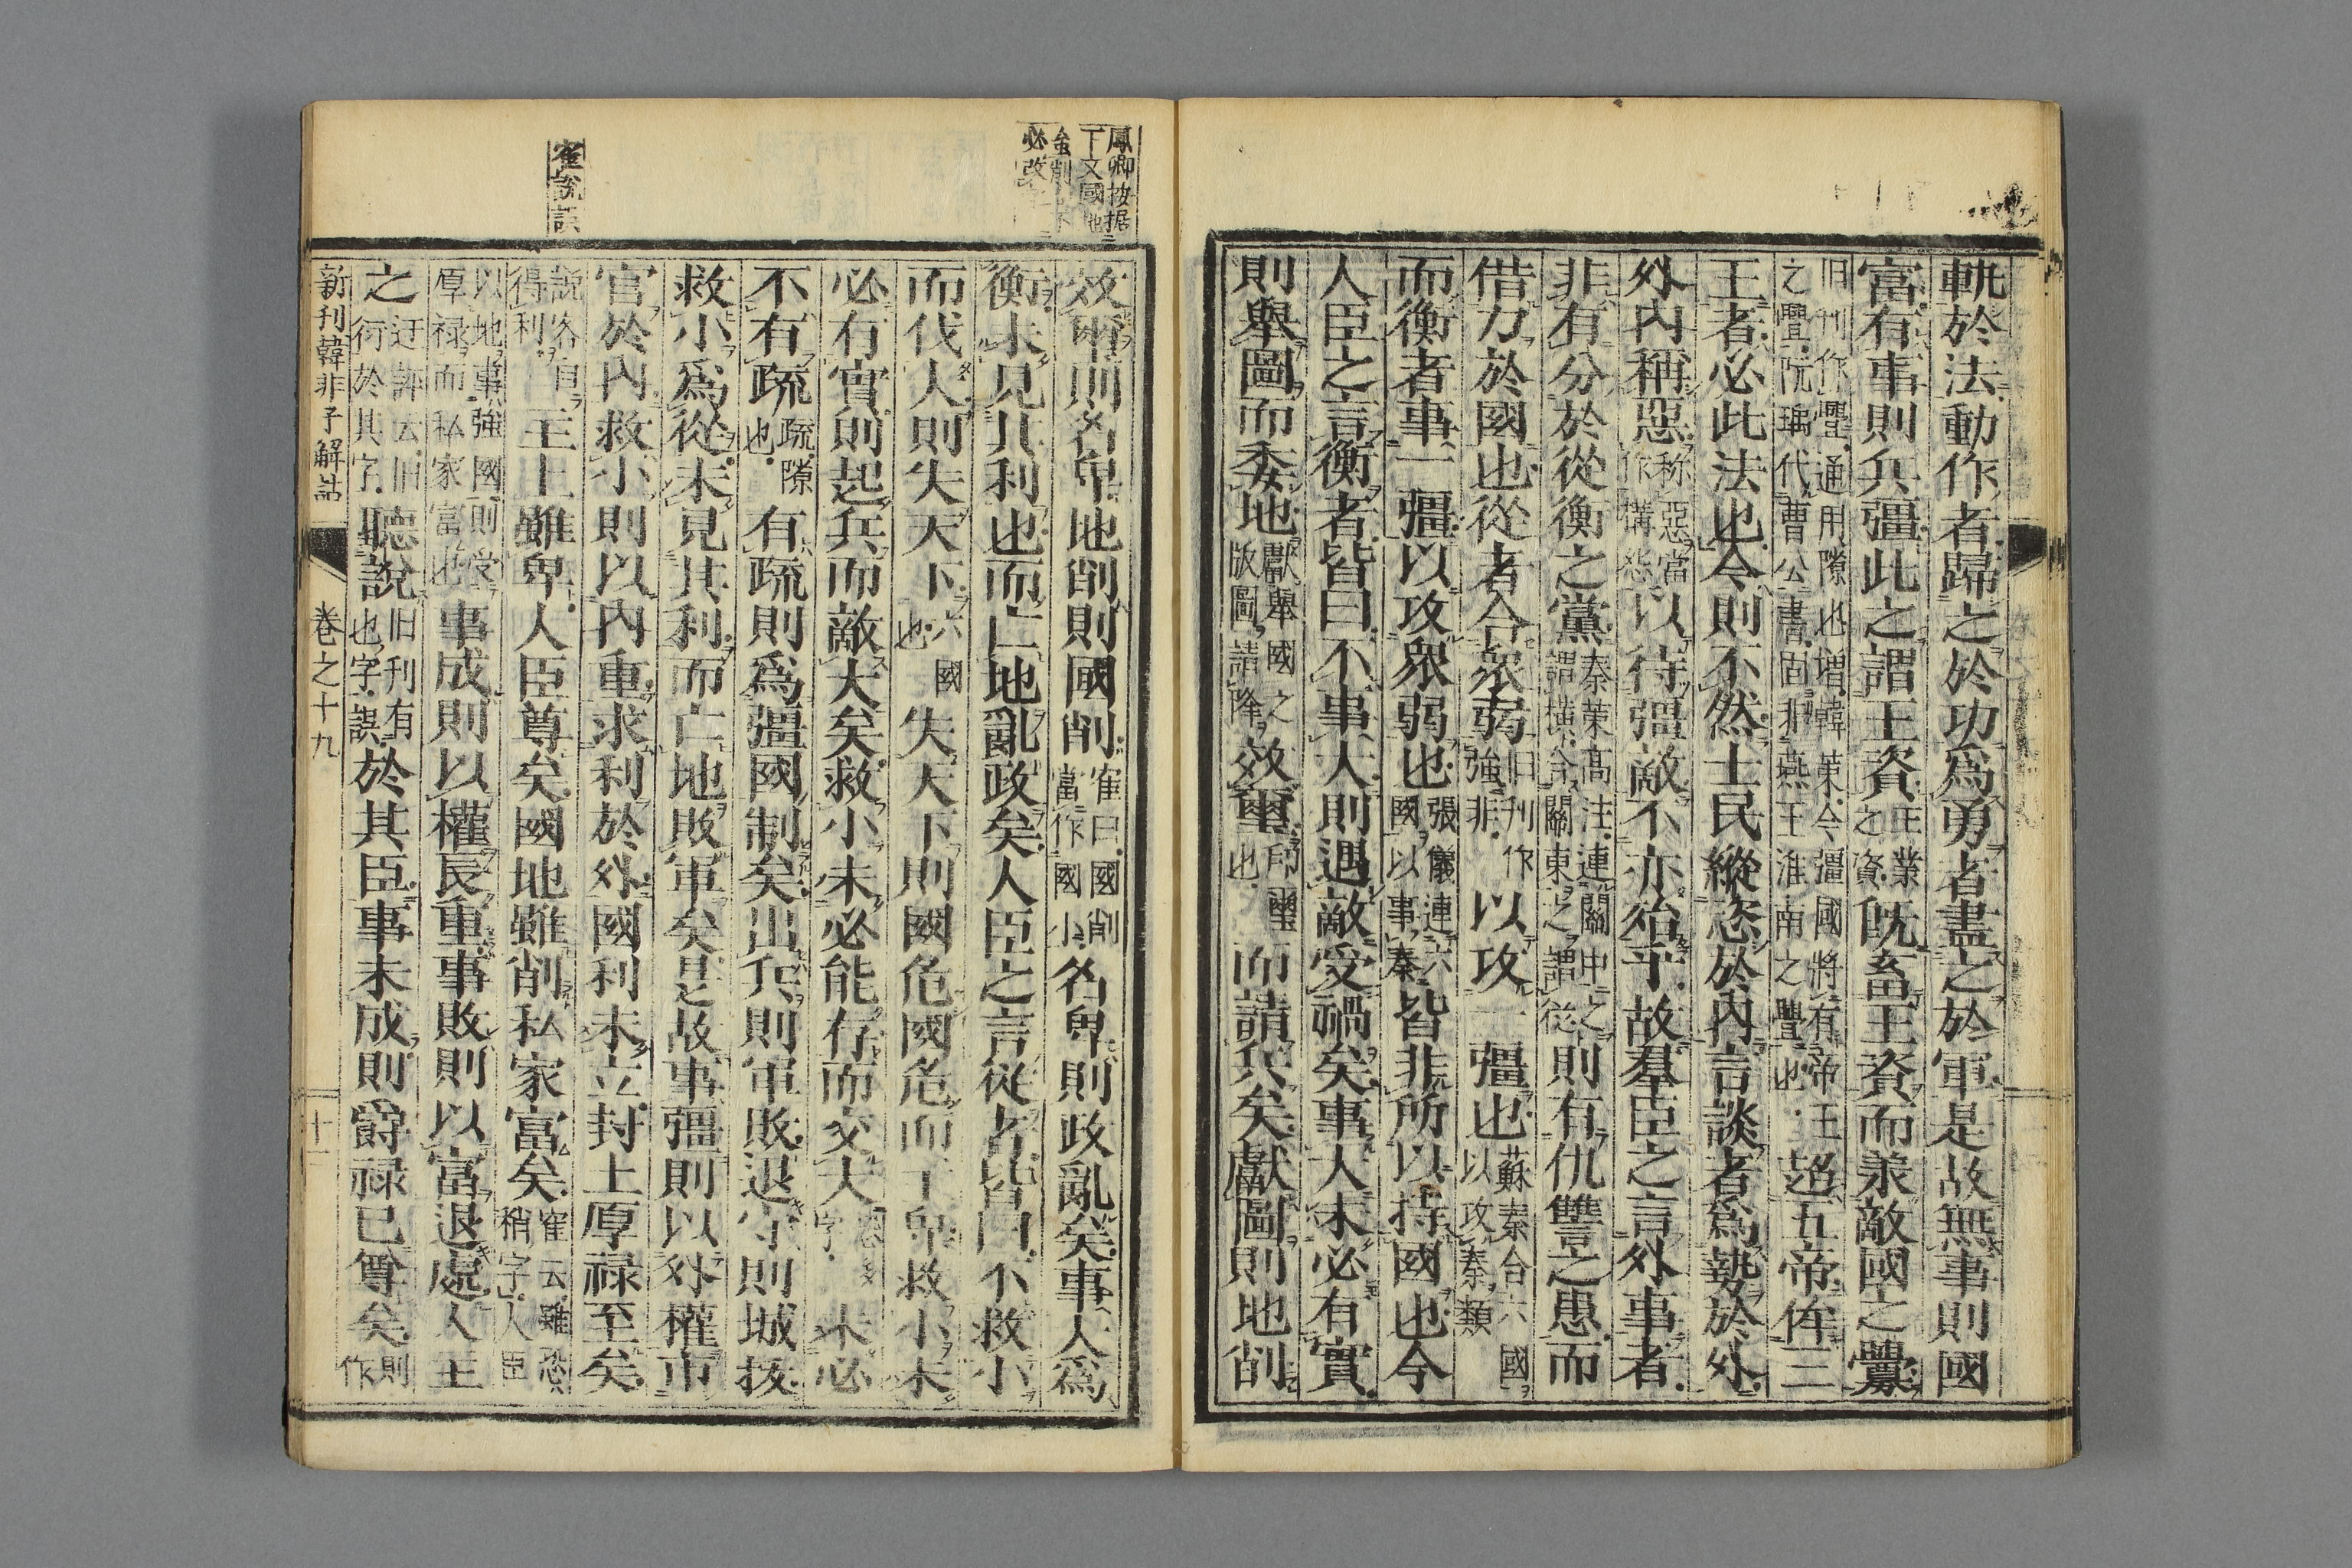 軌於法動作者歸之於功爲勇者盡之於軍是故無事則國
富有事則兵彊此之謂王資王業之資既畜王資而羕敵國之釁
旧刊作璺通用隙也增韓策今彊國將有帝王之釁阮瑀代曹公書固非燕王淮南之釁也超五帝侔三
王者必此法也今則不然士民縱恣於內言談者爲勢於外
外內稱惡称惡當作搆惡以待彊敵不亦殆乎故羣臣之言外事者
非有分於從衡之黨秦策高注連關中之謂橫合關東之謂從則有仇讐之患而
借力於國也從者合衆弱旧刊作強非以攻一彊也蘇秦合六國以攻秦類
而衡者事一彊以攻衆弱也張儀連六國以事秦皆非所以持國也今
人臣之言衡者皆曰不事大則遇敵受禍矣事大未必有實
則舉圖而委地獻舉國之版圖請降效璽印璽也而請兵矣獻圖則地削
鳳卿按据
下文國地
雖削不
必改字
效璽則名卑地削則國削寉曰國削當作國小名卑則政亂矣事人爲
衡未見其利也而亡地亂政矣人臣之言從者皆曰不救小
而伐大則失天下六國也失天下則國危國危而主卑救小未
必有實則起兵而敵大矣救小未必能存而交大恐多字未必
不有疏疏隙也有疏則爲彊國制矣出兵則軍敗退守則城拔
救小爲從未見其利而亡地敗軍矣是故事彊則以外權市
官於內救小則以內重求利於外國利未立封土厚祿至矣
寉說誤
說各自得利主上雖卑人臣尊矣國地雖削私家富矣寉云雖恐稍字人臣
以地事強國則受厚祿而私家富也事成則以權長重事敗則以富退處人主
之迂評云旧衍於其字聽說旧刊有也字誤於其臣事未成則爵祿已尊矣則作
新刊韓非子解詁 卷之十九 十一